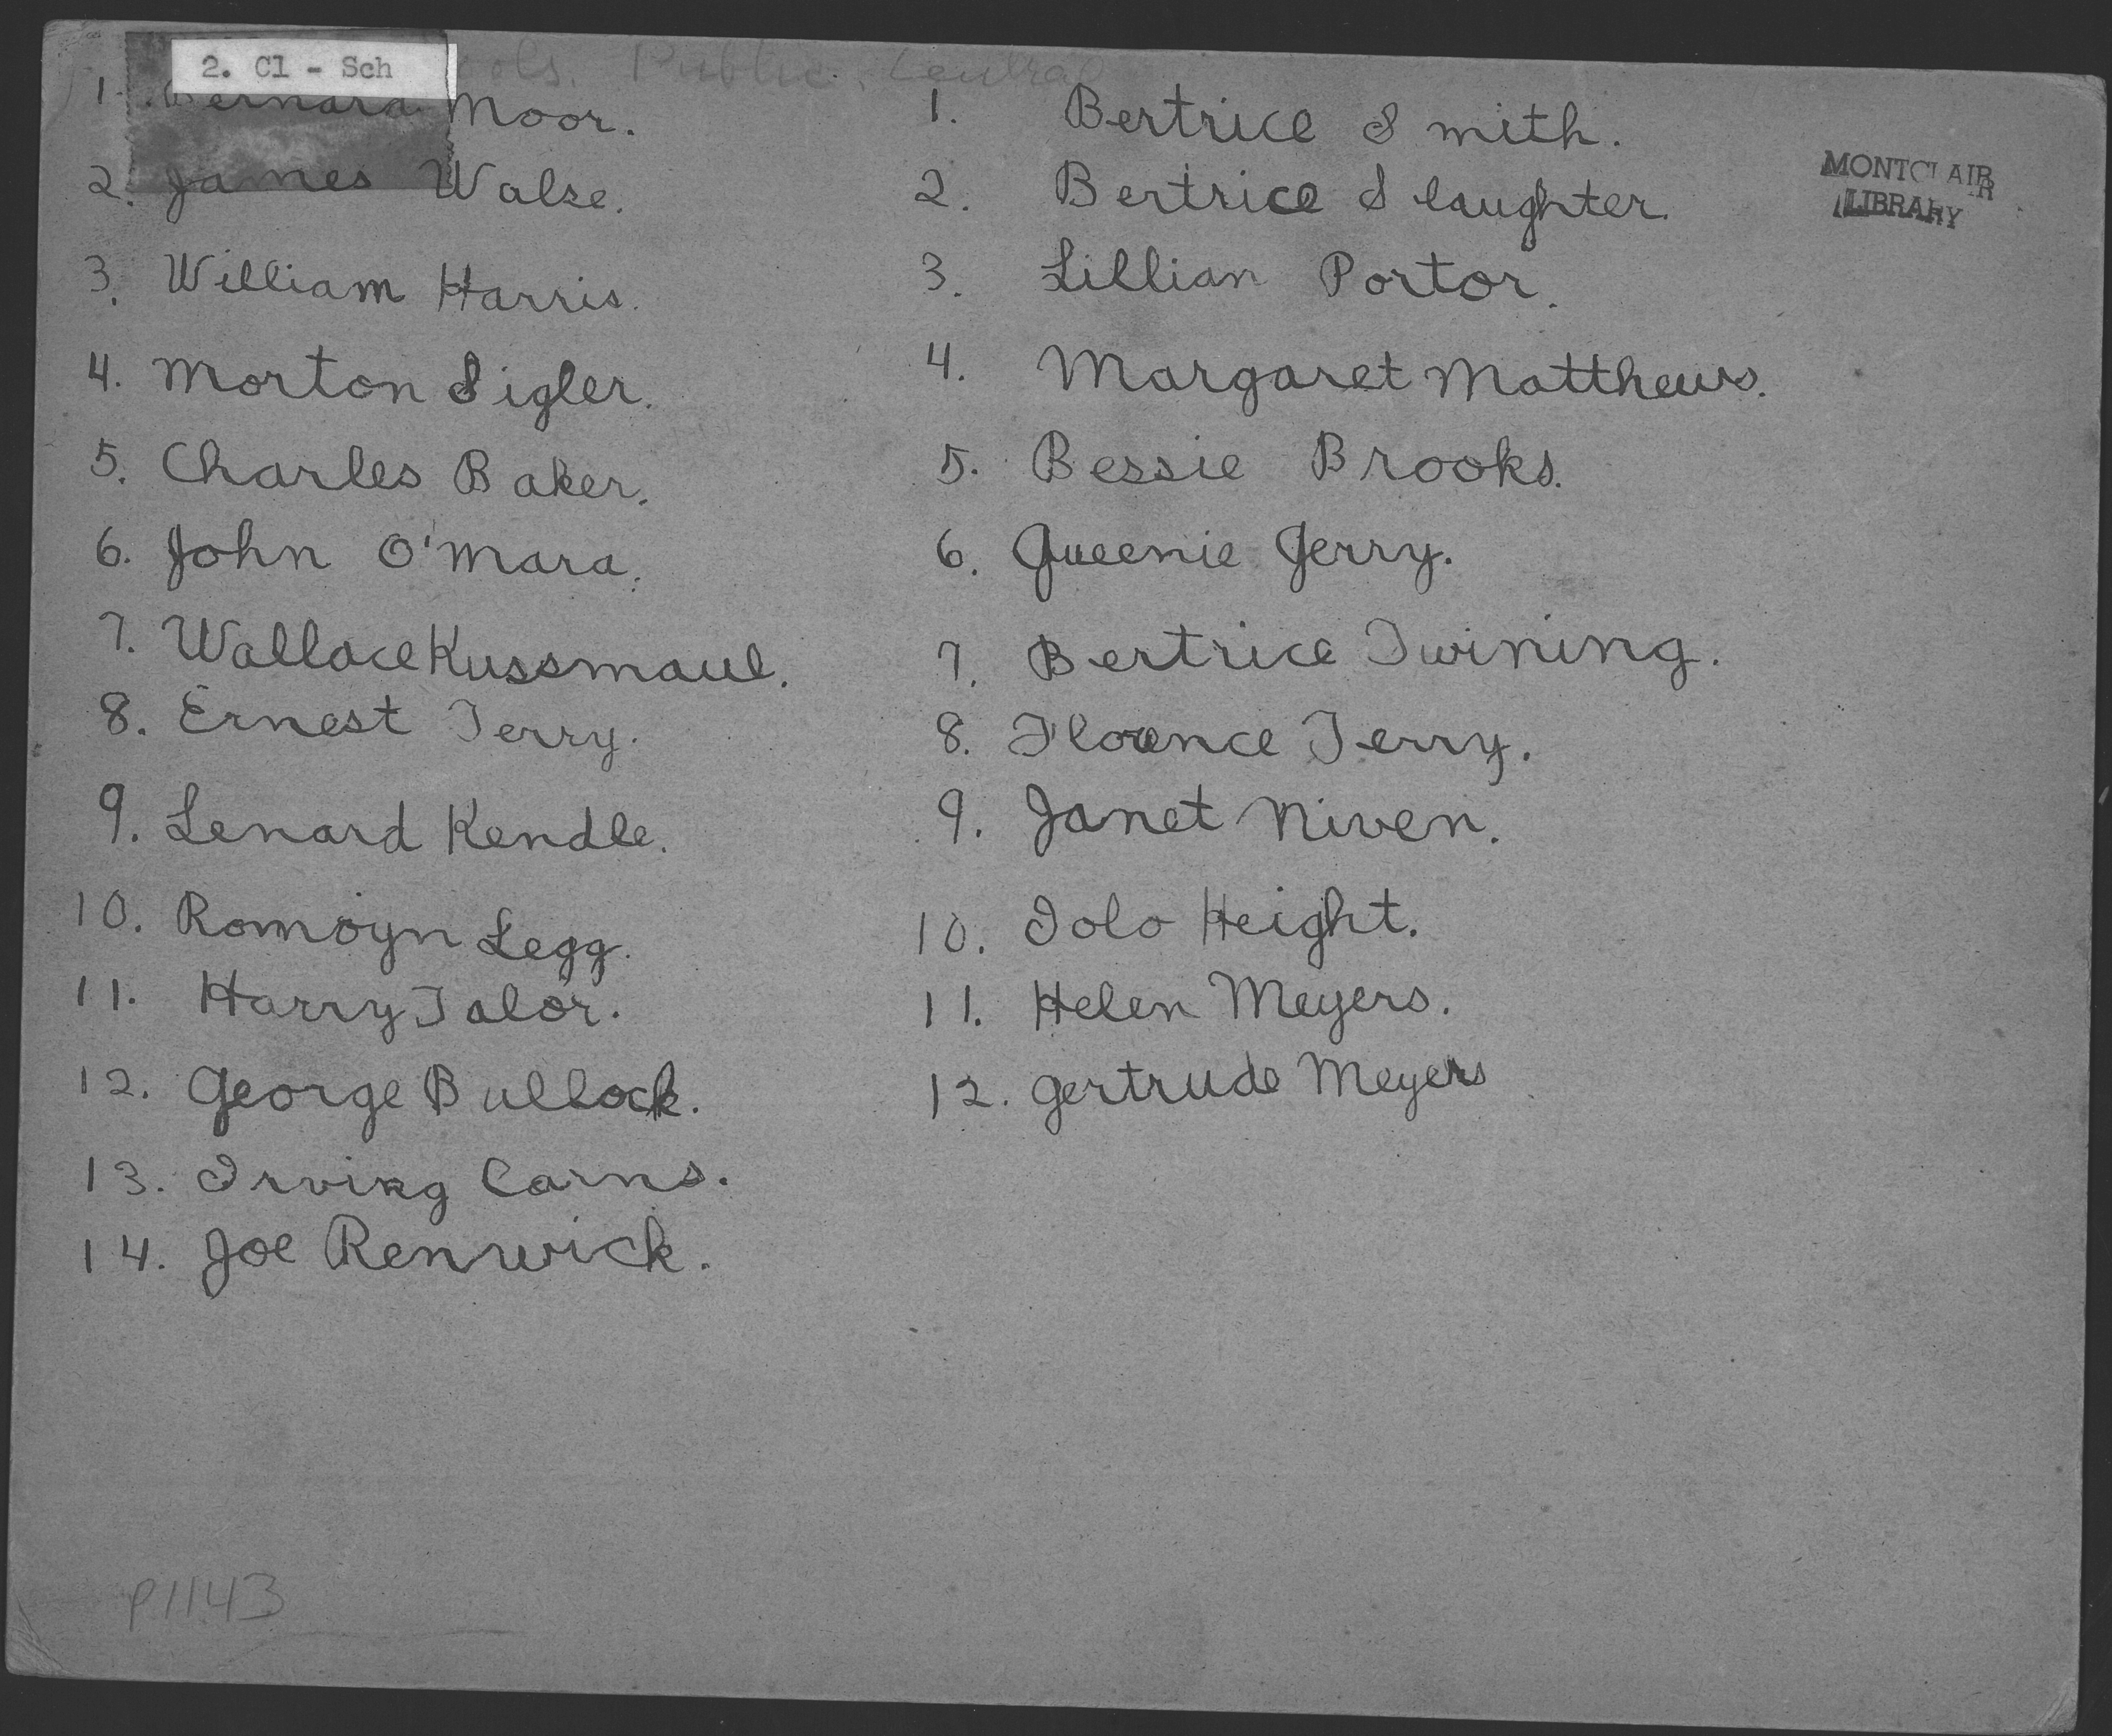 2. Cl - Sch
Public, Central
1. Bernard Moor.
2. James Walse.
3. William Harris.
4. Morton Sigler.
5. Charles Baker.
6. John O'Mara.
7. Wallace Kussmaul.
8. Ernest Terry.
9. Lenard Kendle.
10. Romoyn Legg.
11. Harry Talor.
12. George Bullock.
13. Irving Carns.
14. Joe Renwick.
1. Bertrice Smith.
2. Bertrice Slaughter.
3. Lillian Portor.
4. Margaret Matthews.
5. Bessie Brooks.
6. Queenie Jerry.
7. Bertrice Twining.
8. Florence Terry.
9. Janet Niven.
10. Iolo Height.
11. Helen Meyers.
12. Gertrude Meyers
MONTCLAIR
LIBRARY
P1143